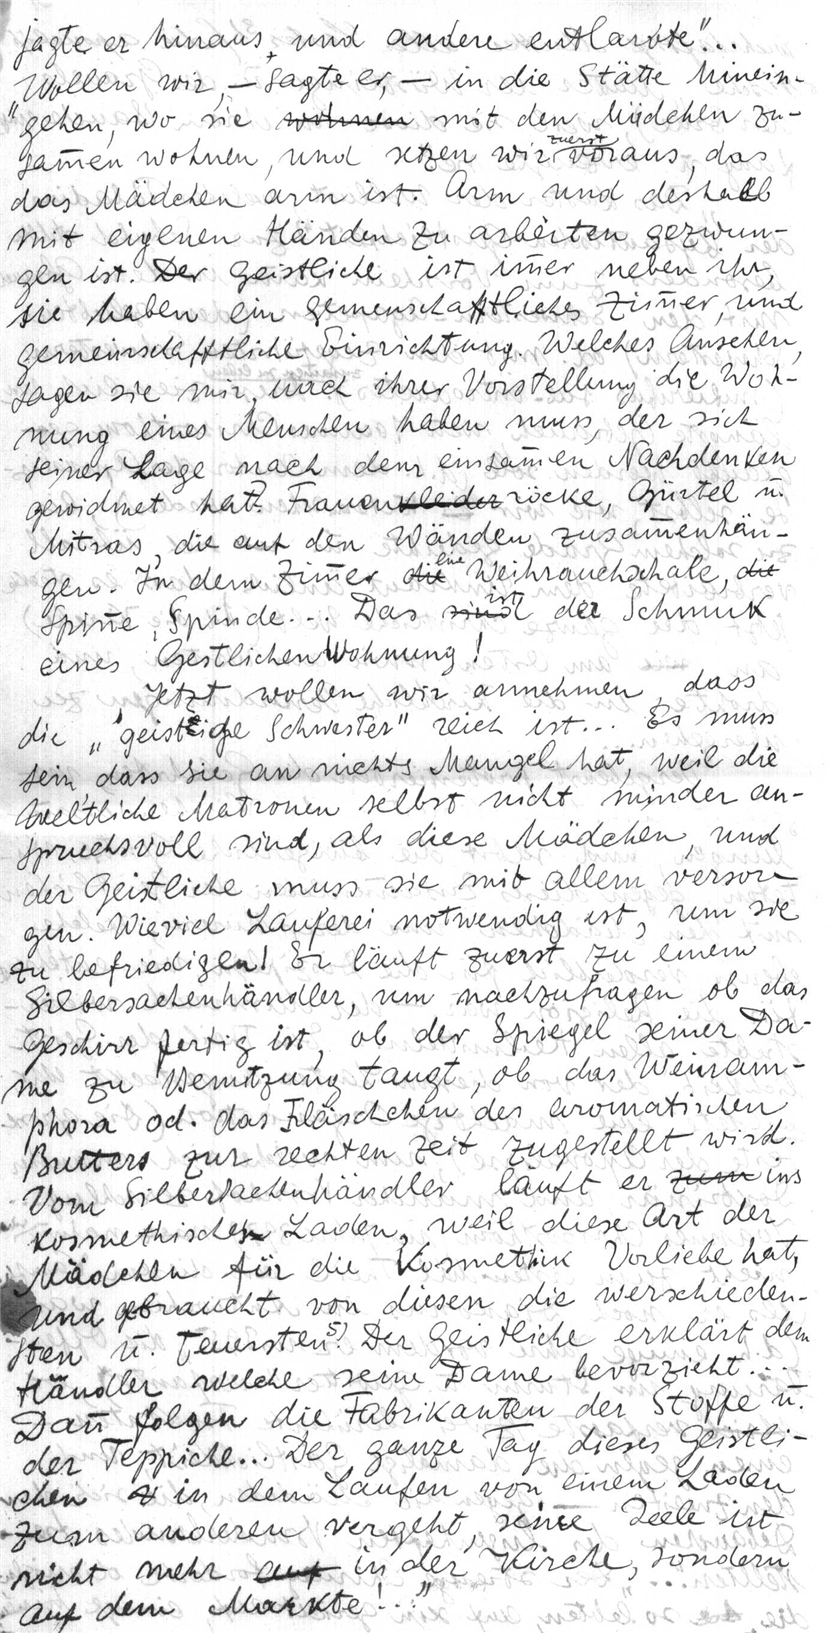 jagte er hinaus, und andere entlarvte"...
Wollen wir, — sagte er, — in die Stätte hinein-
"gehen, wo sie wohnen mit den Mädchen zu-
sam̄en wohnen, und setzen wir zuerst voraus, das
das Mädchen arm ist. Arm und deshalb
mit eigenen Händen zu arbeiten gezwun-
gen ist. Der Geistliche ist im̄er neben ihr,
sie haben ein gemenschafftliches Zim̄er, und
gemeinschafftliche Einrichtung. Welches Ansehen,
sagen sie mir, nach ihrer Vorstellung die Woh-
nung eines Menschen haben muss, der sich
seiner Lage nach dem einsam̄en Nachdenken
gewidmet hat? Frauenkleider röcke, Gürtel u.
Mitras, die auf den Wänden zusam̄enhän-
gen. In dem Zim̄er die eine Weihrauchschale, die
Spin̄e, Spinde... Das sind ist der Schmuk
eines Gestlichen Wohnung!
Jetzt wollen wir annehmen, dass
die „geistige Schwester" reich ist... Es muss
sein, dass sie an nichts Mangel hat, weil die
weltliche Matronen selbst nicht minder an-
spruchsvoll sind, als diese Mädchen, und
der Geistliche muss sie mit allem versor-
gen. Wieviel Lauferei notwendig ist, um sie
zu befriedigen! Er läuft zuerst zu einem
Silbersachenhändler, um nachzufragen ob das
Geschirr fertig ist, ob der Spiegel seiner Da-
me zu Benutzung taugt, ob das Weinam-
phora od. das Fläschchen des aromatischen
Butters zur rechten Zeit zugestellt wird.
Vom Silbersachenhändler läuft er zum ins
kosmethischen Laden, weil diese Art der
Mädchen für die Kosmethik Vorliebe hat,
und gebraucht von diesen die werschieden-
sten u. teuersten 5) Der Geistliche erklärt dem
Händler welche seine Dame bevorzieht...
Dan̄ folgen die Fabrikanten der Stoffe u.
der Teppiche... Der ganze Tag dieses Geistli-
chen in dem Laufen von einem Laden
zum anderen vergeht, seine Seele ist
nicht mehr auf in der Kirche, sondern
auf dem Markte!..."